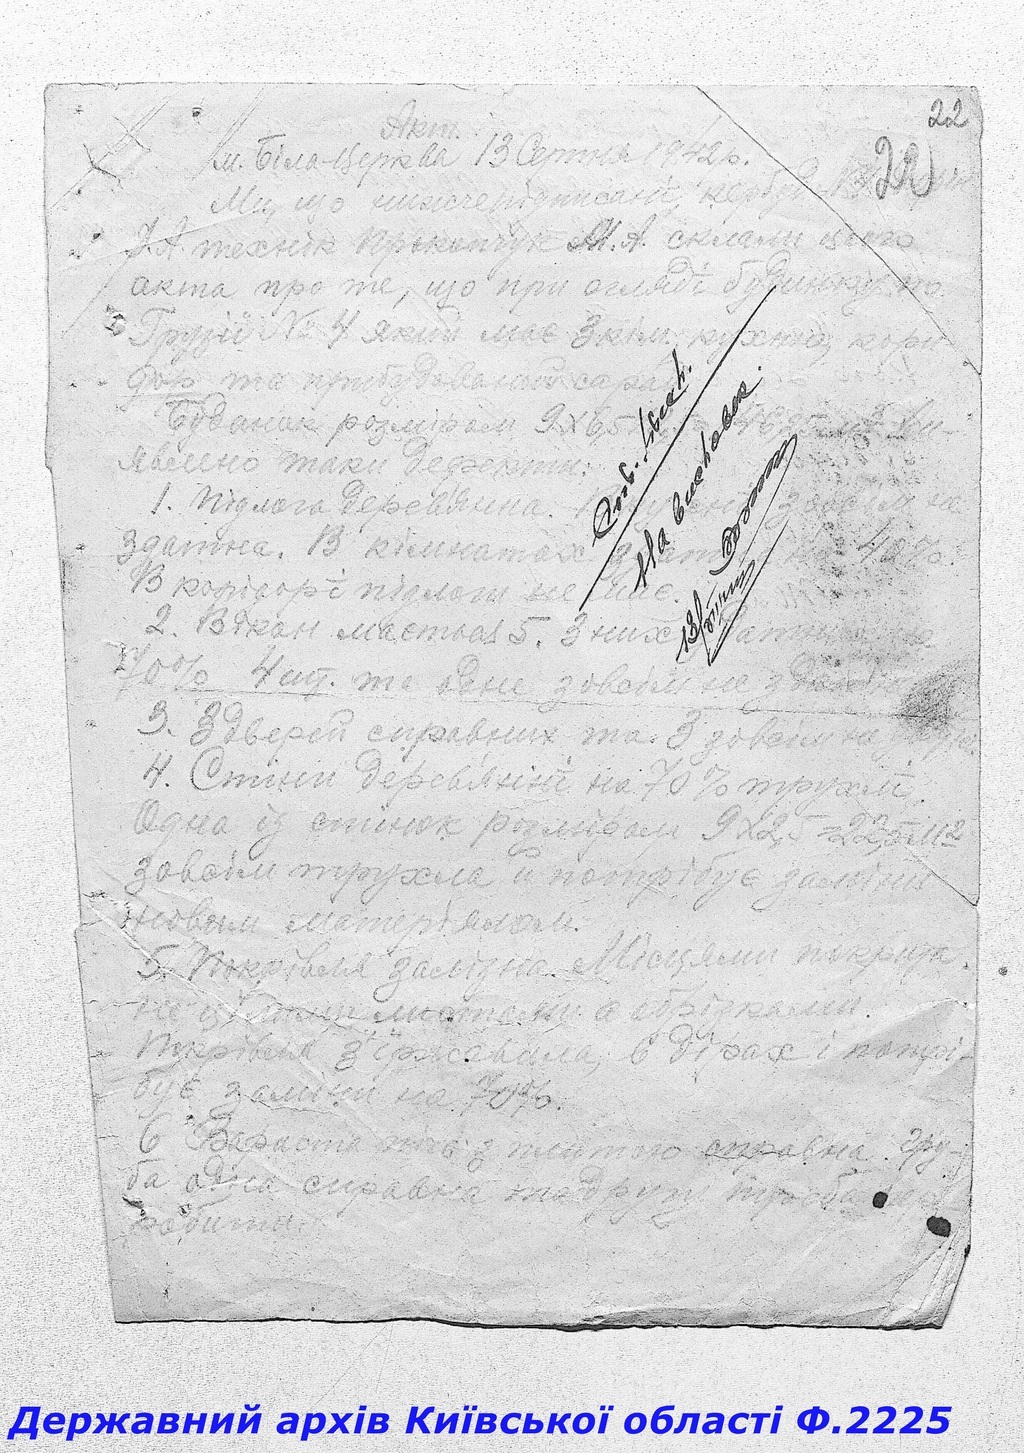 22
22
Акт.
м. Біла-Церква 13 Серпня 1942 р.
Ми, що нижчепідписані, кербуд №
технік Прокопчук М.А. склали цього
акта про те, що при огляді будинку по
Грузії № 4 який має 3 кім. кухню, кори-
дор та прибудований сарай
Будинок розміром 9х6,5 Ви-
явлено таки дефекти:
1. Підлога деревяна. зовсім не
здатна. В кімнатах на 40%.
В корідорі підлоги не має.
2. Вікон мається 5. З них здатних на
70% 4 шт. та одне зовсім не здатне
3. 3 дверей справних та 3 зовсім не
4. Стіни деревяні на 70% трухлі.
Одна із стінок розміром 9х2,5=22,5 м2
зовсім трухла й потрібує заміни
новим матеріялом.
5. Покрівля залізна. Місцями покрита
не цілими листами а обрізками.
Покрівля зіржавіла, в дірах і потрі-
бує заміни на 70%.
6 Вариста піч з плитою справна. Гру-
ба одна справна та другу треба
робити.
На висновок.
13/
Державний архів Київської області Ф.2225